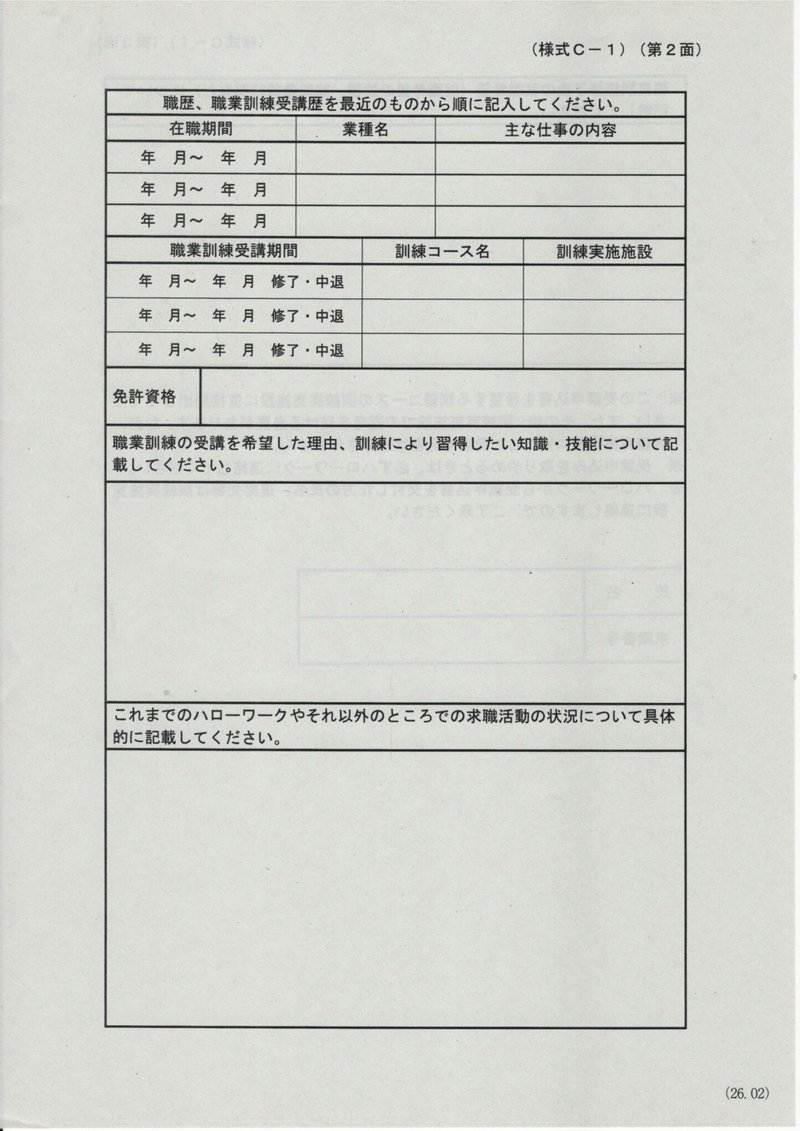 （様式Ｃ－１）（第２面）
職歴、職業訓練受講歴を最近のものから順に記入してください。
在職期間 業種名 主な仕事の内容
年 月～ 年 月
年 月～ 年 月
年 月～ 年 月
職業訓練受講期間 訓練コース名 訓練実施施設
年 月～ 年 月 修了・中退
年 月～ 年 月 修了・中退
年 月～ 年 月 修了・中退
免許資格
職業訓練の受講を希望した理由、訓練により習得したい知識・技能について記
載してください。
これまでのハローワークやそれ以外のところでの求職活動の状況について具体
的に記載してください。
(26.02)